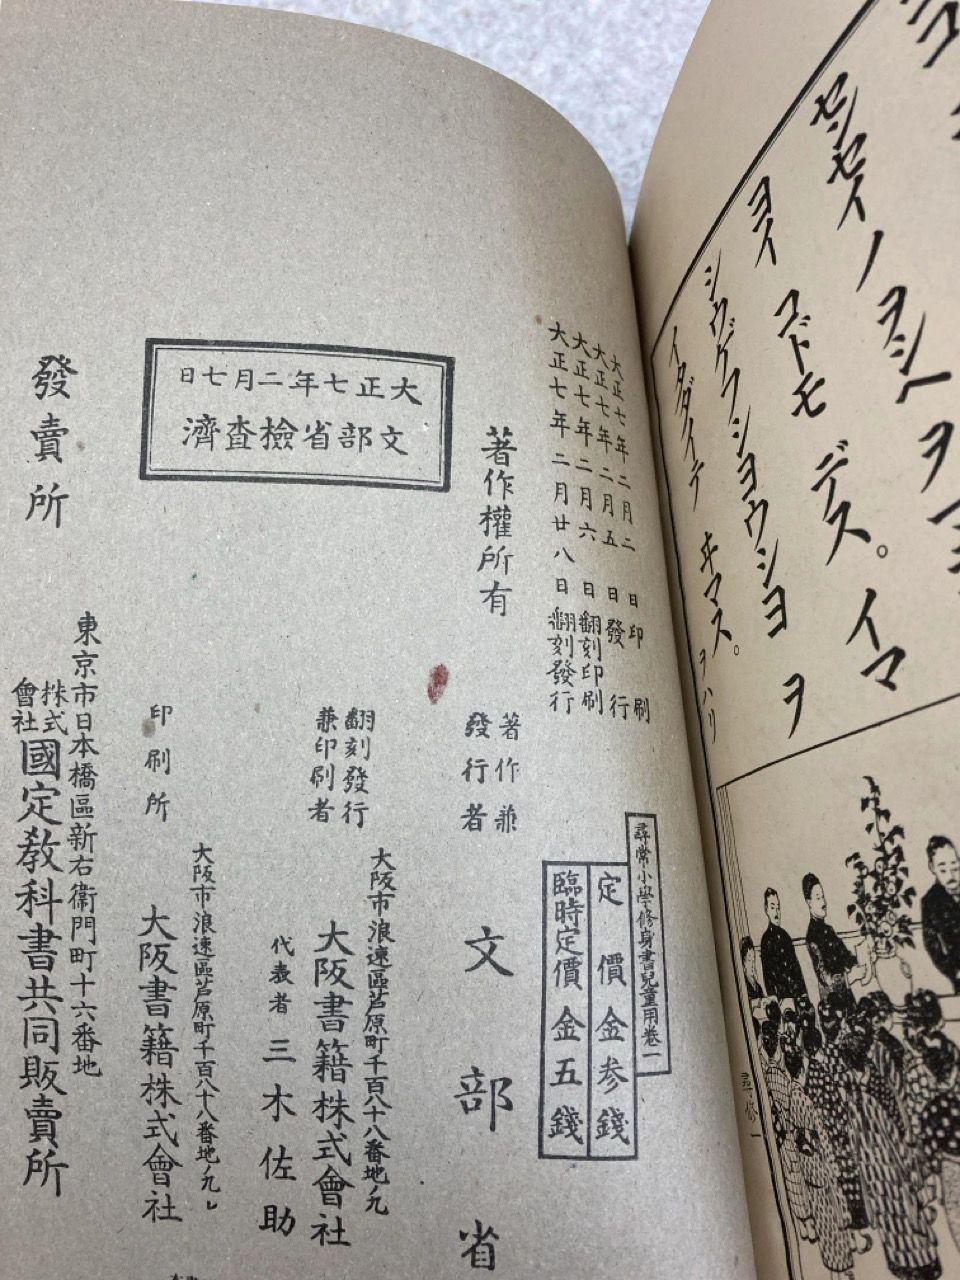 センセイノヲシヘヲ
ヨイ コドモ デス。イマ
シウゲフショウショヲ
イタダイテ ヰマス。
ヲハリ
尋修一
大正七年二月二日印刷
大正七年二月五日發行
大正七年二月六日翻刻印刷
大正七年二月廿八日翻刻發行
尋常小學修身書兒童用卷一
定價金参錢
臨時定價金五錢
著作權所有
著作兼
發行者
文部省
大正七年二月七日
文部省檢査濟
翻刻發行
兼印刷者
大阪市浪速區芦原町千百八十八番地ノ九
大阪書籍株式會社
代表者 三木佐助
印刷所
大阪市浪速區芦原町千百八十八番地ノ九
大阪書籍株式會社
發賣所
東京市日本橋區新右衛門町十六番地
株式會社 國定教科書共同販賣所